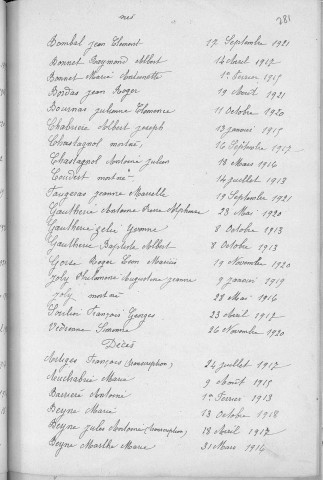 nés
281
Bombel Jean Clément 17 Septembre 1921
Bonnet Raymond Albert 14 Avril 1917
Bonnet Marie Antoinette 1er Février 1915
Bordas Jean Roger 19 Août 1921
Bournas Julienne Clémence 11 Octobre 1920
Chabrerie Albert Joseph 13 Janvier 1915
Chastagnol mort né 16 Septembre 1917
Chastagnol Antoine Julien 18 Mars 1916
Coudert mort né 14 Juillet 1913
Faugeras Jeanne Marcelle 19 Septembre 1921
Gautherie Antoine Pierre Alphonse 23 Mai 1920
Gautherie Zélie Yvonne 8 Octobre 1913
Gautherie Baptiste Albert 8 Octobre 1913
Roger Léon Marius 19 Novembre 1920
Joly Philomène Augustine Jeanne 9 Janvier 1919
Joly mort né 28 Mai 1916
François Georges 23 Avril 1917
Védrenne Simonne 26 Novembre 1920
Décès
François (transcription) 24 Juillet 1917
Marie 9 Août 1915
Barrière Antoine 1er Février 1913
Beyne Marie 13 Octobre 1918
Beyne Jules Antoine (transcription) 18 Avril 1917
Beyne Marthe Marie 31 Mars 1914